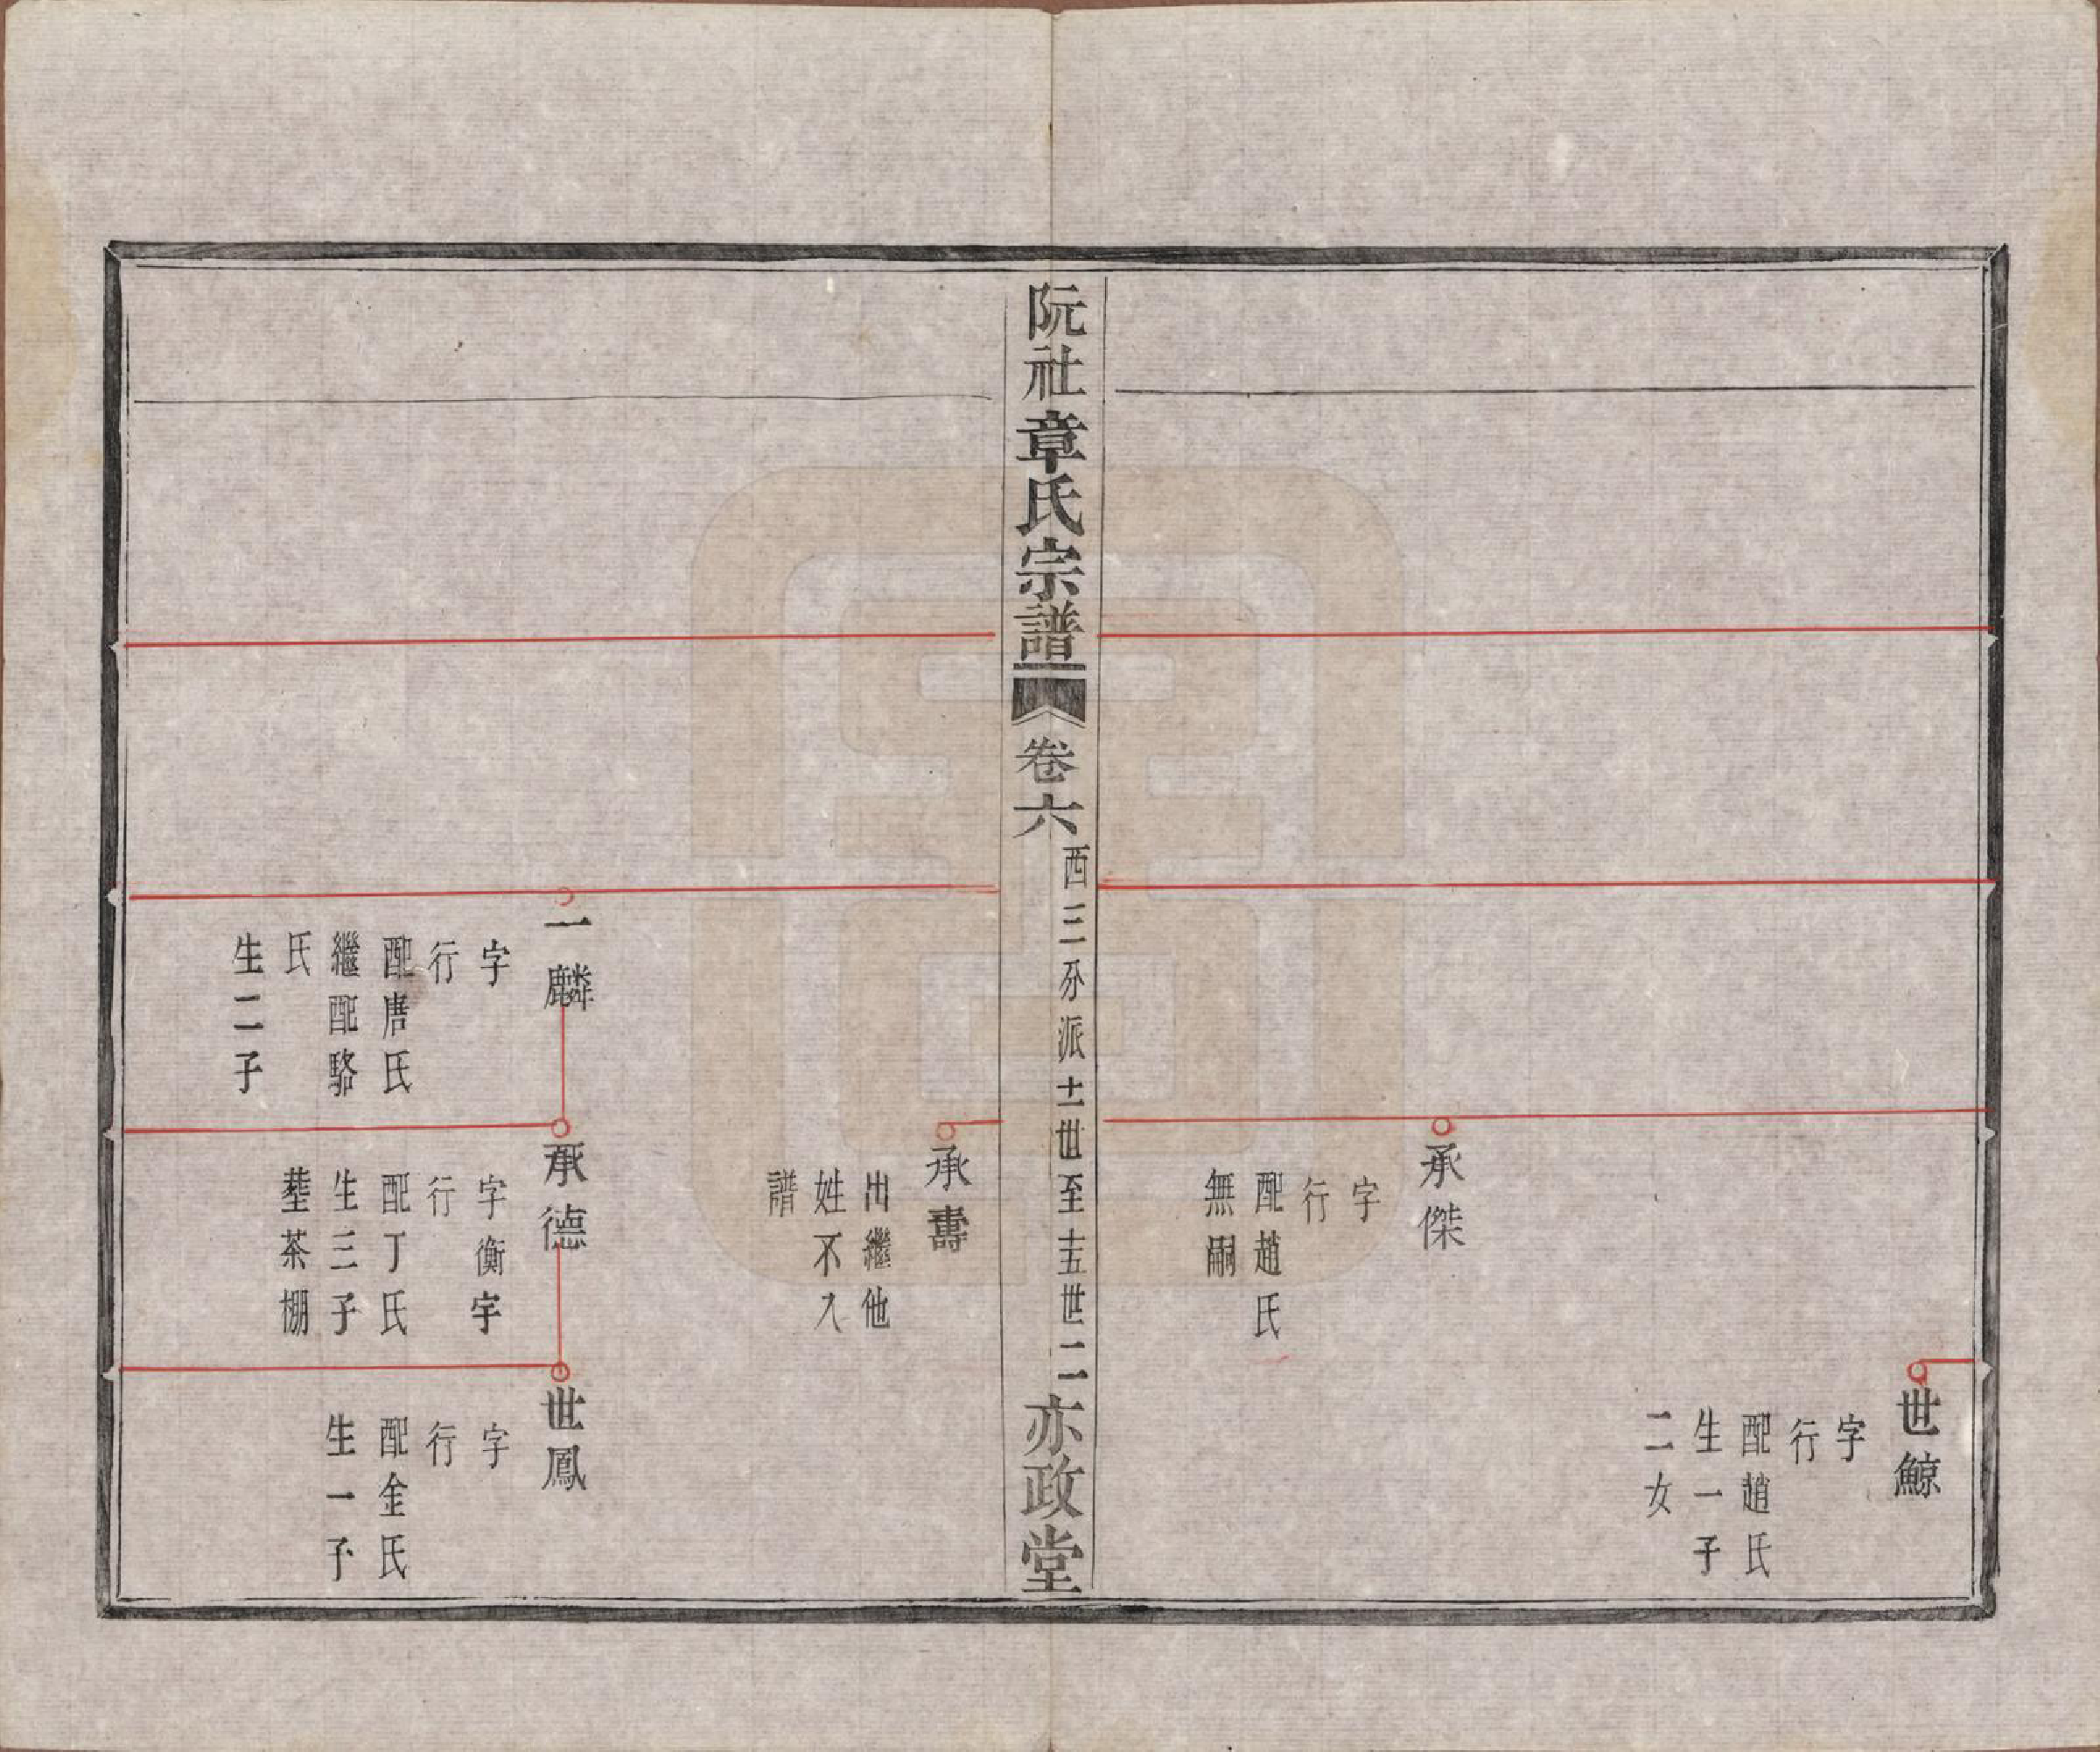 世鯨
字
行
配趙氏
生一子
二女
承傑
字
行
配趙氏
無嗣
阮社章氏宗譜
卷六
西三分派十一世至十五世二
亦政堂
承壽
出繼他
姓不入
譜
一麟
字
行
配唐氏
繼配駱
氏
生二子
承德
字衡宇
行
配丁氏
生三子
塟茶棚
世鳳
字
行
配金氏
生一子